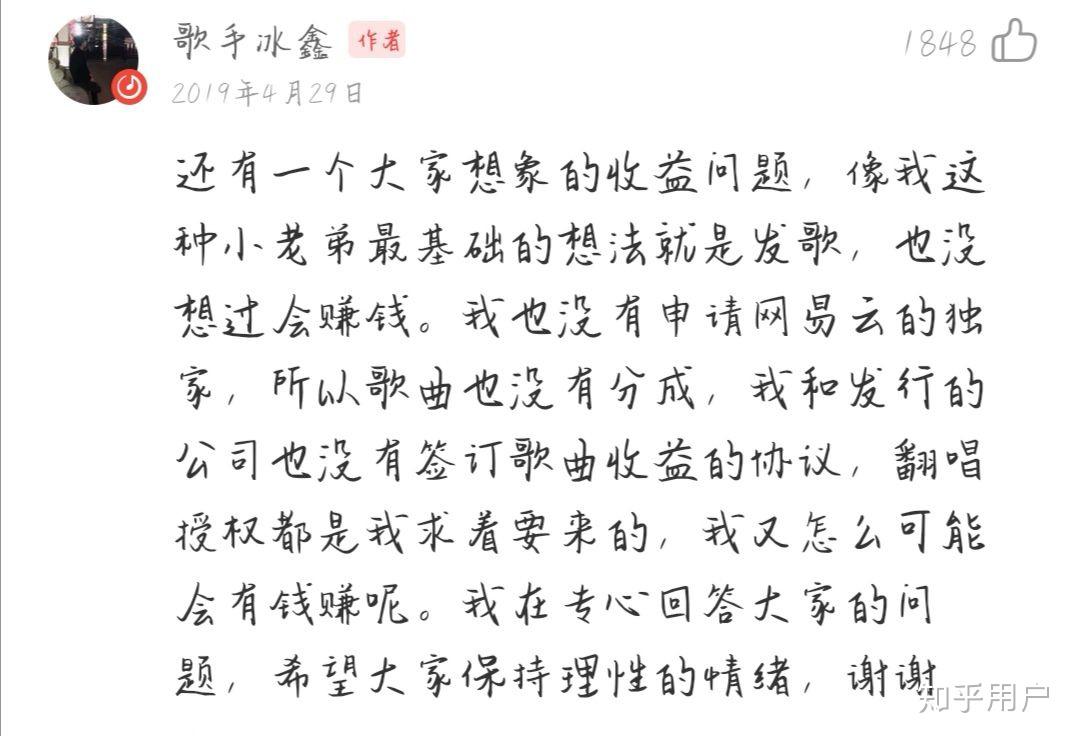 歌手冰鑫 作者
1848
2019年4月29日
还有一个大家想象的收益问题，像我这
种小老弟最基础的想法就是发歌，也没
想过会赚钱。我也没有申请网易云的独
家，所以歌曲也没有分成，我和发行的
公司也没有签订歌曲收益的协议，翻唱
授权都是我求着要来的，我又怎么可能
会有钱赚呢。我在专心回答大家的问
题，希望大家保持理性的情绪，谢谢
知乎用户